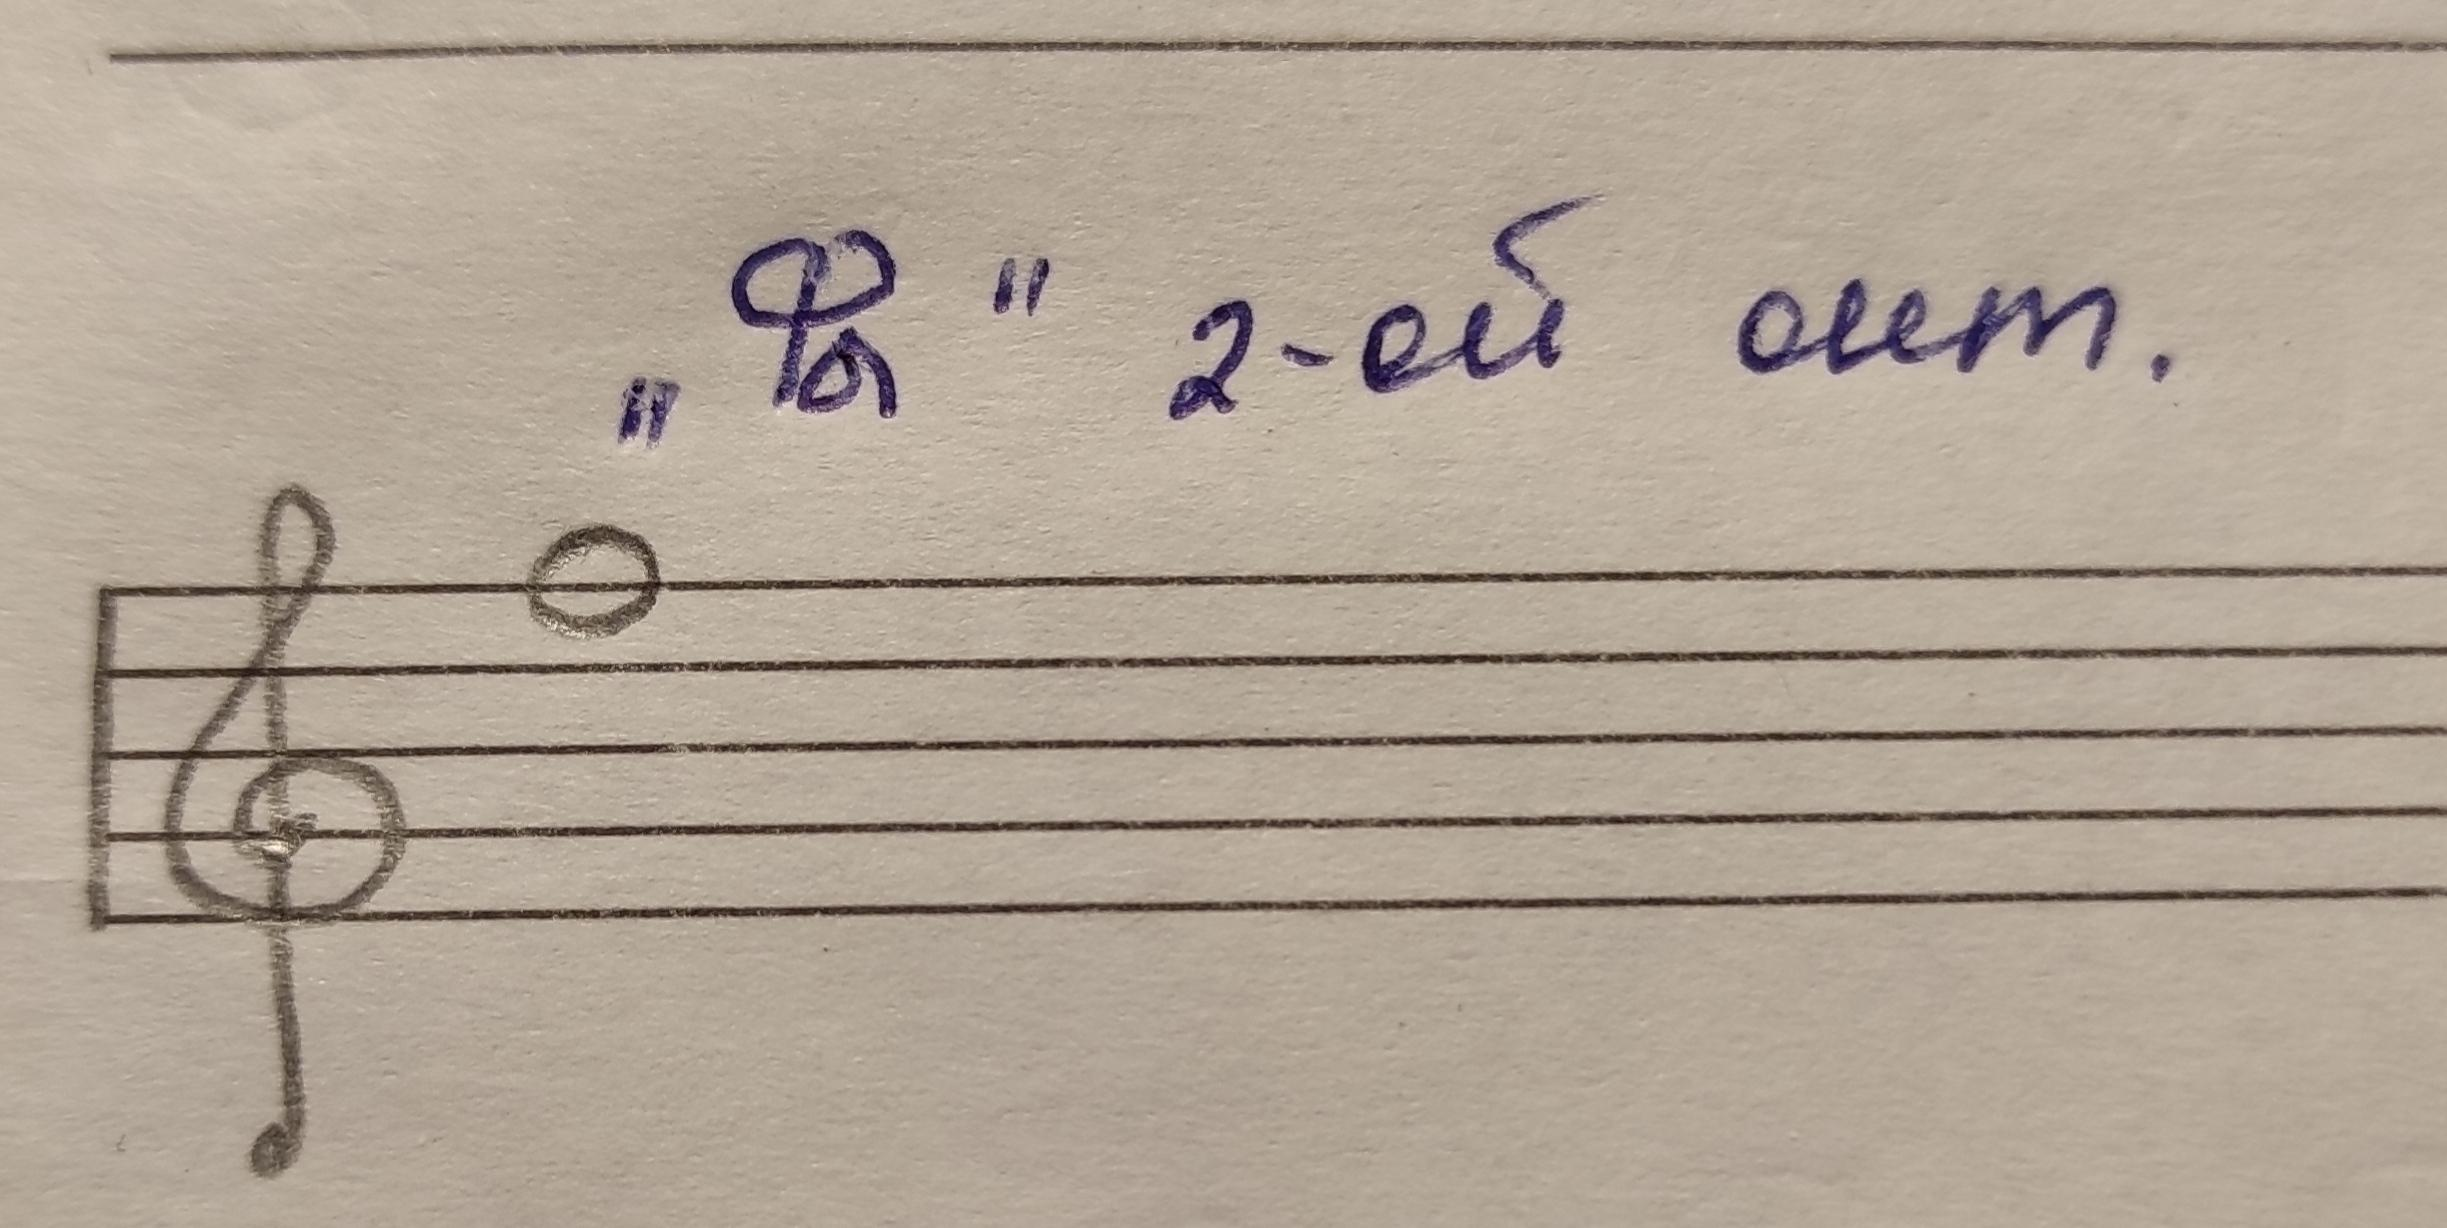 „Фа" 2-ой окт.